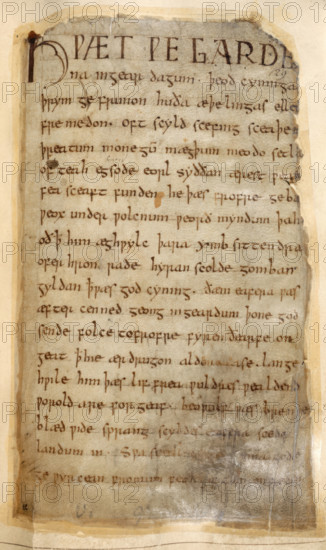 HǷÆT ǷE GARDE
na ingear dagum . þeod cyninga
þrym ge frunon huða æþelingas elle
fremedon . oft scyld scefing sceaþe
þreatum monegū mægþum meodo setla
of teah egsode eorl syððan ærest ƿear
fea sceaft funden he þæs frofre geba
ƿeox under ƿolcnum ƿeorð myndum þah
oð ꝥ him æghƿylc þara ymb sittendra
ofer hron rade hyran scolde gomban
gyldan ꝥ ƿæs god cyning . ðæm eafera ƿæs
æfter cenned geong ingeardum þone god
sende folce tofrofre fyren ðearfe on
geat ꝥ hie ær drugon aldor ase . lange
hƿile him þæs lif frea ƿuldres ƿealdend
ƿorold are for geaf . beoƿulf ƿæs breme
blæd ƿide sprang scyldes eafera scede
landum in . Sƿa guma gode
ge ƿyrcean fromum